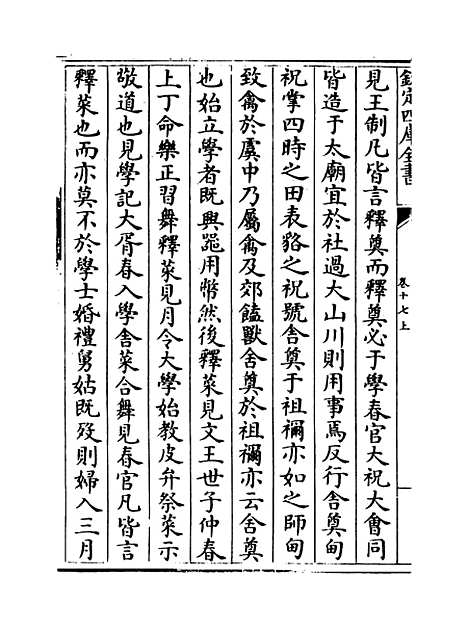 欽定四庫全書
卷十七上
見王制凡皆言釋奠而釋奠必于學春官大祝大會同
皆造于太廟宜於社過大山川則用事焉反行舎奠甸
祝掌四時之田表貉之祝號舎奠于祖禰亦如之師甸
致禽於虞中乃屬禽及郊饁獸舎奠於祖禰亦云舎奠
也始立學者既興器用幣然後釋菜見文王世子仲春
上丁命樂正習舞釋菜見月令大學始教皮弁祭菜示
敬道也見學記大胥春入學舎菜合舞見春官凡皆言
釋菜也而亦莫不於學士婚禮舅姑既殁則婦入三月